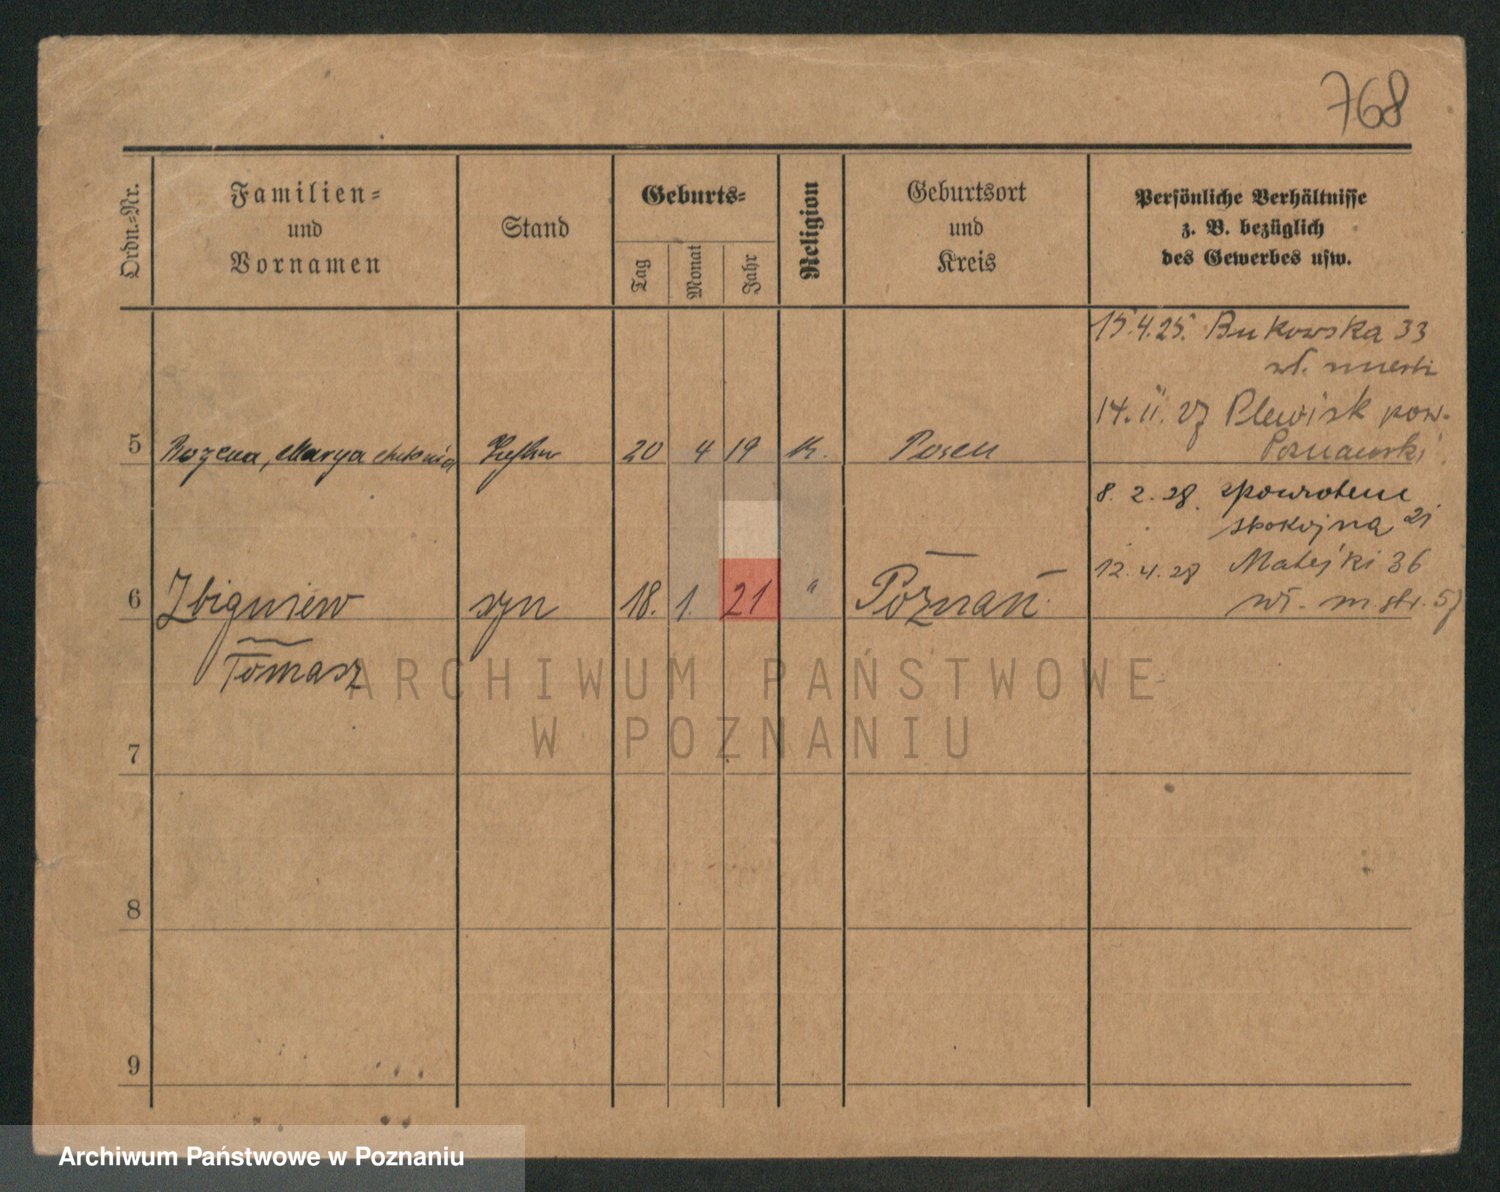 768
Ordn.=Nr.
Familien=
und
Vornamen
Stand
Geburts=
Tag
Monat
Jahr
Religion
Geburtsort
und
Kreis
Persönliche Verhältnisse
z. B. bezüglich
des Gewerbes usw.
15.4.25. Bukowska 33
14.11.27 Plewisk pow.
Poznański
5 Bożena, Marya Antonia 20 4 19 K. Posen
8. 2. 28. zpowrotem
spokojna 21
12.4.28 Matejki 36
6 Zbigniew syn 18. 1. 21 " Poznań
Tomasz
ARCHIWUM PAŃSTWOWE
W POZNANIU
7
8
9
Archiwum Państwowe w Poznaniu